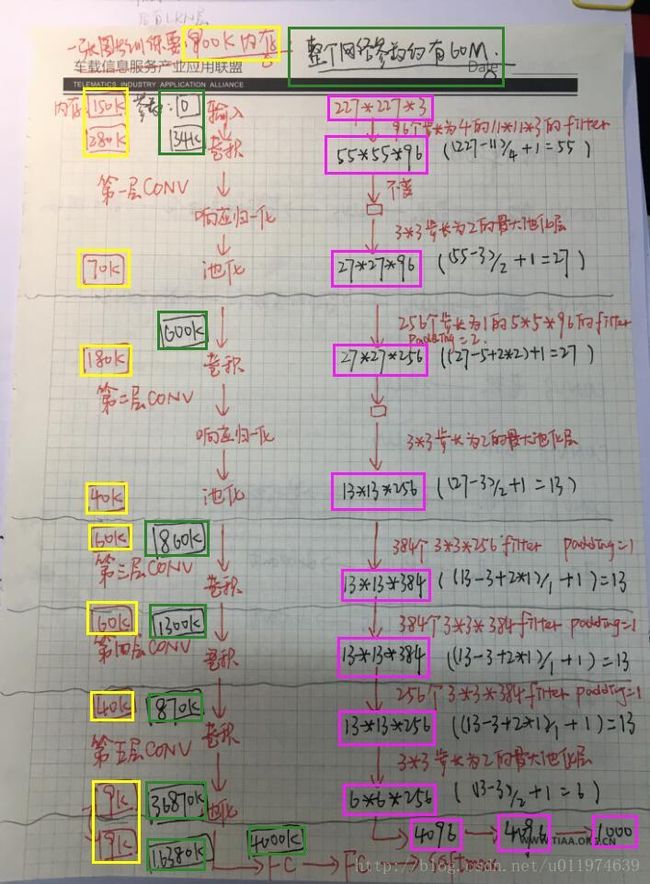 后面LRN层
一张图片训练要900K内存
整个网络参数约有60M.
车载信息服务产业应用联盟
Date
TELEMATICS INDUSTRY APPLICATION ALLIANCE
内存 150K 参数: 0 输入 227*227*3
96个步长为4的11*11*3的filter
280K 34K 卷积 55*55*96 ((227-11)/4+1=55)
第一层CONV 不变
响应归一化
3*3步长为2的最大池化层
70K 池化 27*27*96 ((55-3)/2+1=27)
600K 256个步长为1的5*5*96的filter
padding=2.
180K 卷积 27*27*256 ((27-5+2*2)+1=27)
第二层CONV
响应归一化 3*3步长为2的最大池化层
40K 池化 13*13*256 ((27-3)/2+1=13)
60K 1860K 384个3*3*256 filter padding=1
第三层CONV 卷积 13*13*384 ((13-3+2*1)/1+1)=13
60K 1300K 384个3*3*384 filter padding=1
第四层CONV 卷积 13*13*384 ((13-3+2*1)/1+1)=13
40K 870K 256个3*3*384 filter padding=1
第五层CONV 卷积 13*13*256 ((13-3+2*1)/1+1)=13
3*3步长为2的最大池化层
9K 36870K 池化 6*6*256 ((13-3)/2+1=6)
19K 16380K 4000K 4096 4096 1000
WWW.TIAA.ORG.CN
FC FC Softmax
http://blog.csdn.net/u011974639